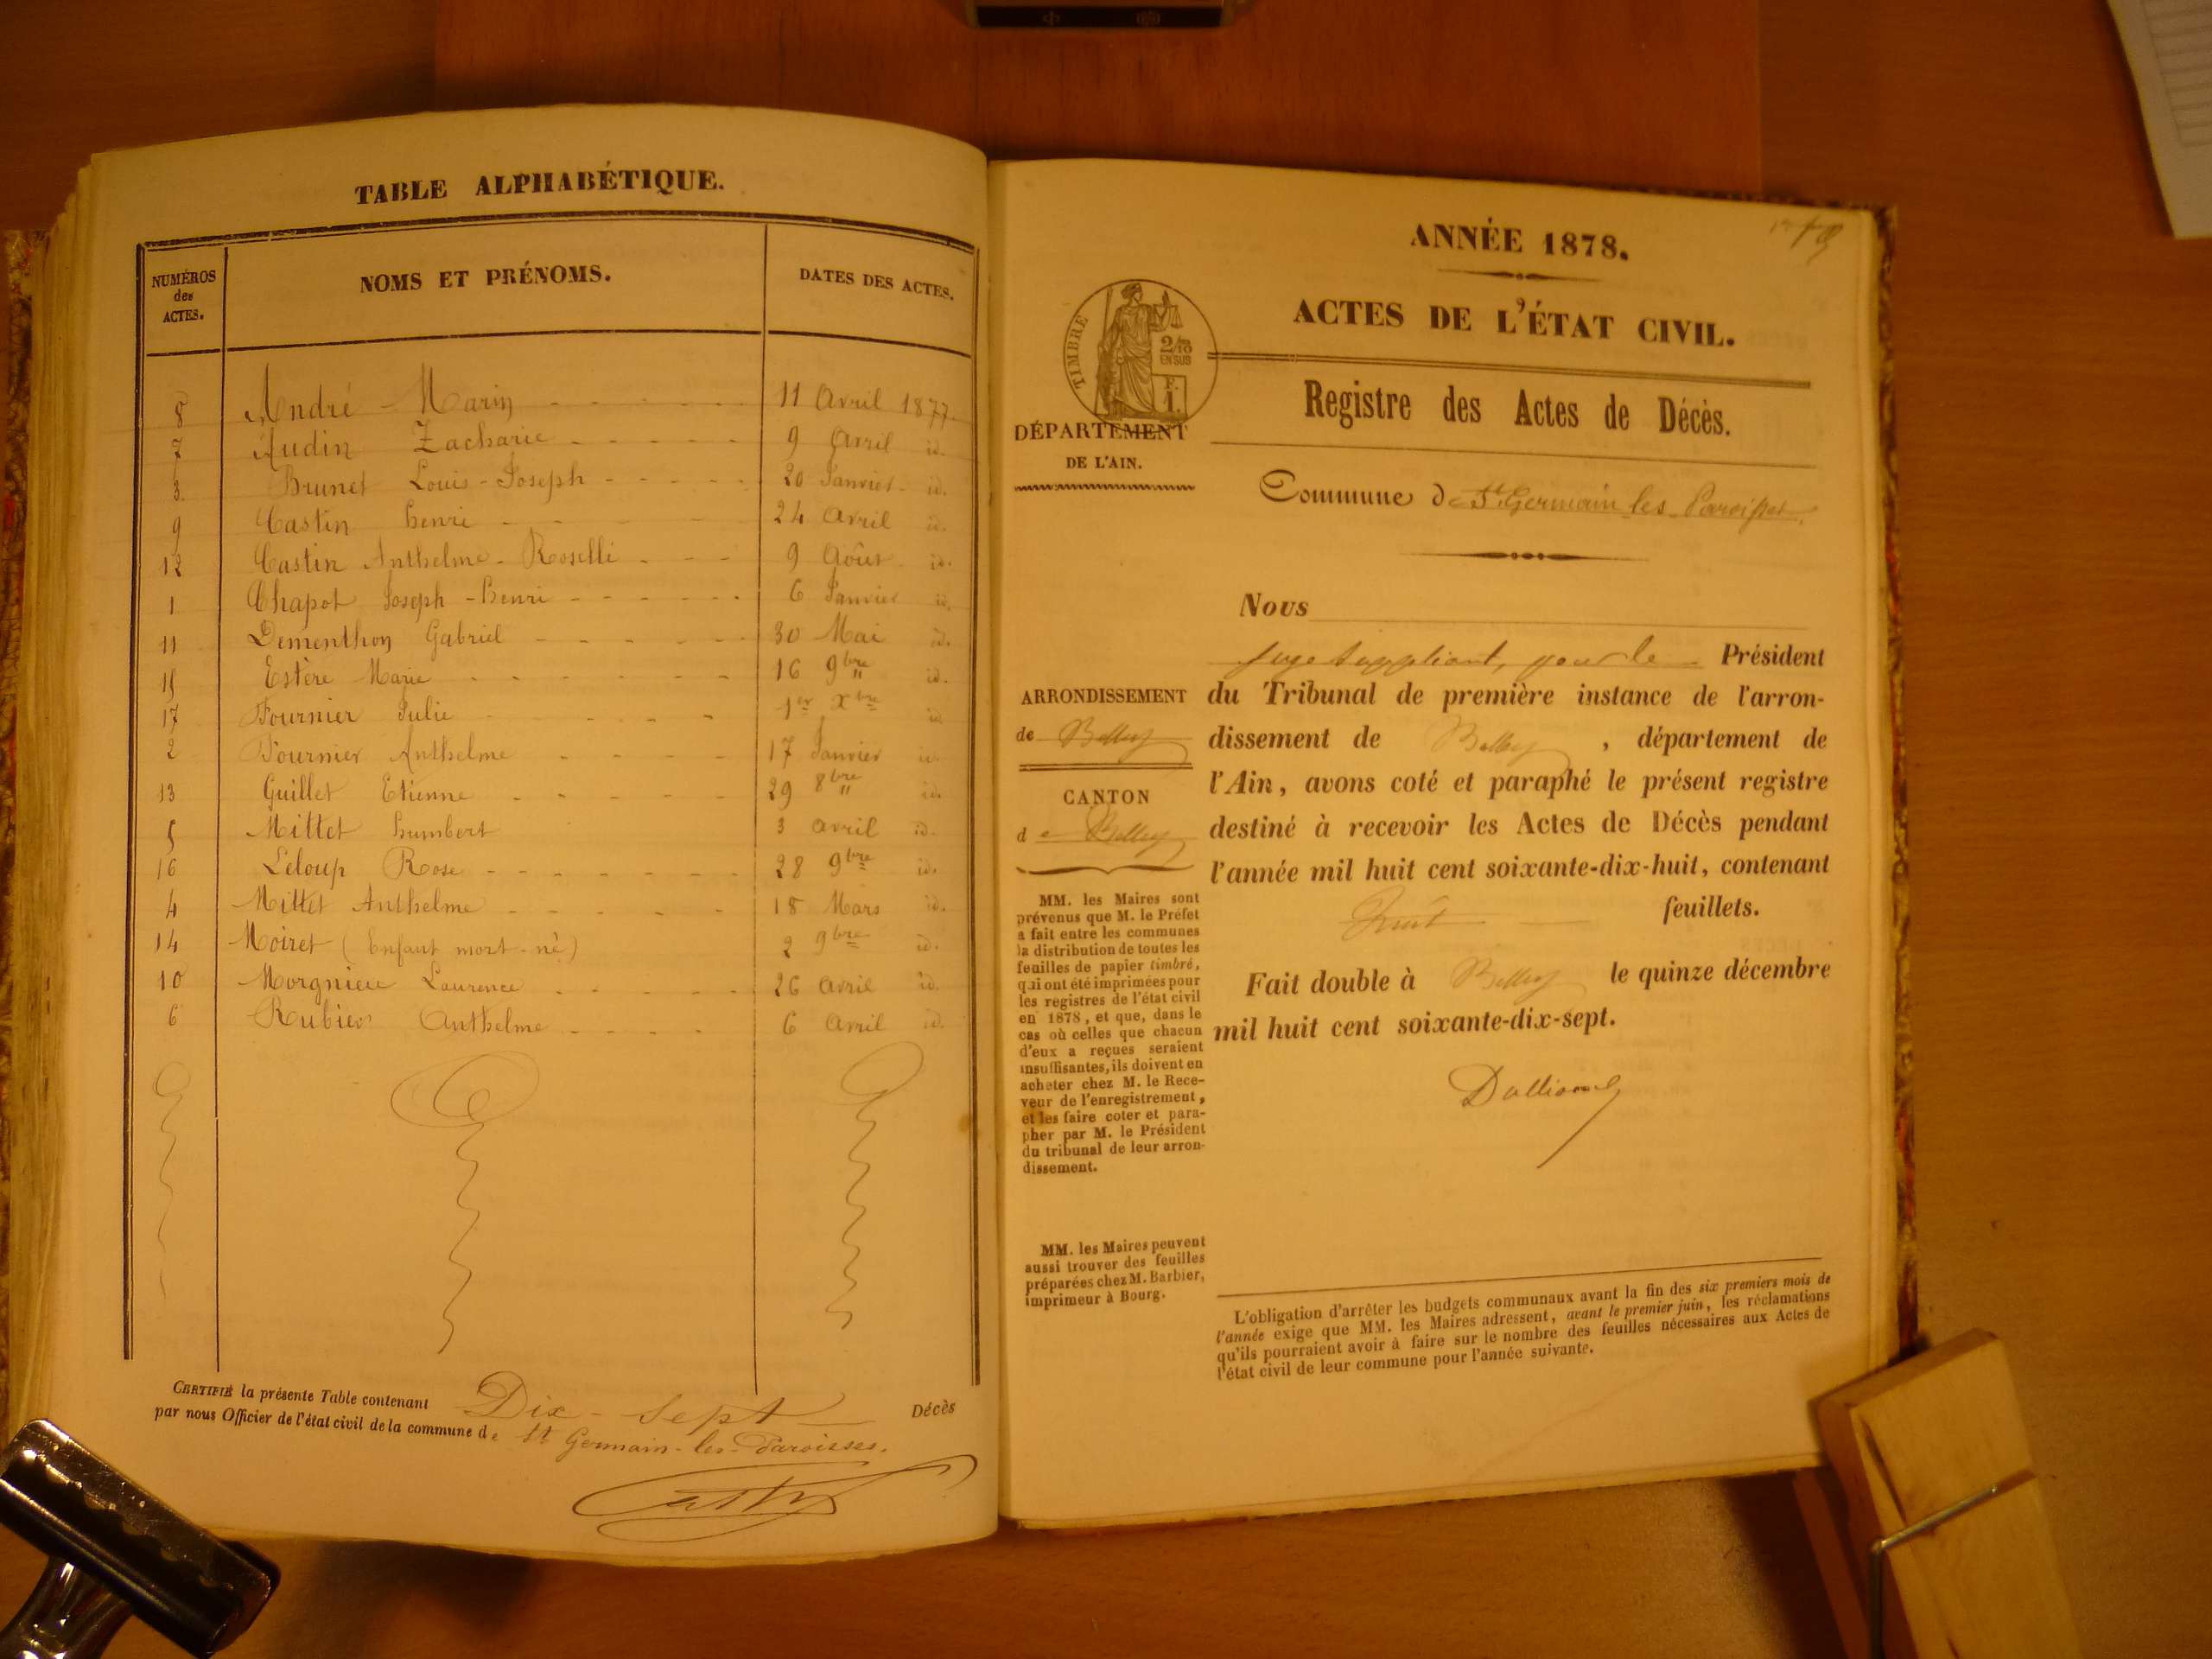 TABLE ALPHABÉTIQUE.
NUMÉROS des ACTES. NOMS ET PRÉNOMS. DATES DES ACTES.
8 André - Marin 11 Avril 1877.
7 Audin Zacharie 9 Avril id.
3 Brunet Louis-Joseph 20 Janvier id.
9 Castin henri 24 Avril id.
12 Castin Anthelme-Roselli 9 Août id.
1 Chapot Joseph-henri 6 Janvier id.
11 Dementhon Gabriel 30 Mai id.
Estère Marie 16 9bre id.
17 Fournier Julie 1er Xbre id
2 Fournier Anthelme 17 Janvier id.
13 Guillet Etienne 29 8bre id.
5 Mittet humbert 3 avril id.
16 Leloup Rose 28 9bre id.
4 Mittet Anthelme 18 Mars id.
14 Moiret (Enfant mort-né) 2 9bre id.
10 Morgnieu Laurence 26 avril id.
6 Rubier Anthelme 6 avril id.
CERTIFIÉ la présente Table contenant Dix-sept Décès
par nous Officier de l'état civil de la commune de St Germain-les-Paroisses.
ANNÉE 1878.
ACTES DE L'ÉTAT CIVIL.
TIMBRE
2/10
EN SUS
F.
1.
Registre des Actes de Décès.
DÉPARTEMENT
DE L'AIN.
Commune de St Germain les Paroisses.
Nous
juge suppléant, pour le Président
ARRONDISSEMENT
de Belley
du Tribunal de première instance de l'arron-
dissement de Belley, département de
l'Ain, avons coté et paraphé le présent registre
CANTON
de Belley
destiné à recevoir les Actes de Décès pendant
l'année mil huit cent soixante-dix-huit, contenant
huit feuillets.
Fait double à Belley le quinze décembre
mil huit cent soixante-dix-sept.
MM. les Maires sont
prévenus que M. le Préfet
a fait entre les communes
la distribution de toutes les
feuilles de papier timbré,
qui ont été imprimées pour
les registres de l'état civil
en 1878, et que, dans le
cas où celles que chacun
d'eux a reçues seraient
insuffisantes, ils doivent en
acheter chez M. le Rece-
veur de l'enregistrement,
et les faire coter et para-
pher par M. le Président
du tribunal de leur arron-
dissement.
MM. les Maires peuvent
aussi trouver des feuilles
préparées chez M. Barbier,
imprimeur à Bourg.
L'obligation d'arrêter les budgets communaux avant la fin des six premiers mois de
l'année exige que MM. les Maires adressent, avant le premier juin, les réclamations
qu'ils pourraient avoir à faire sur le nombre des feuilles nécessaires aux Actes de
l'état civil de leur commune pour l'année suivante.